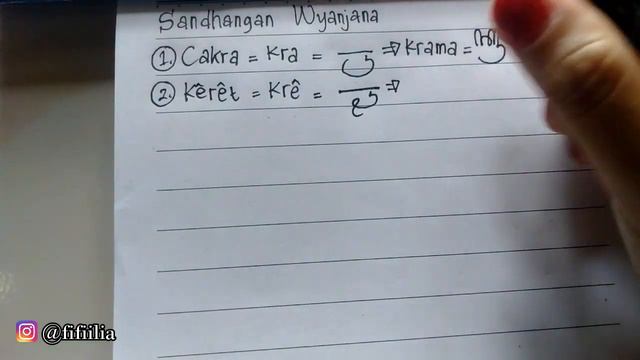 Sandhangan Wyanjana
1. Cakra = Kra = ꦿ ⇒ Krama =
2. Kêrêt = Krê = ꦽ ⇒
@fifiilia